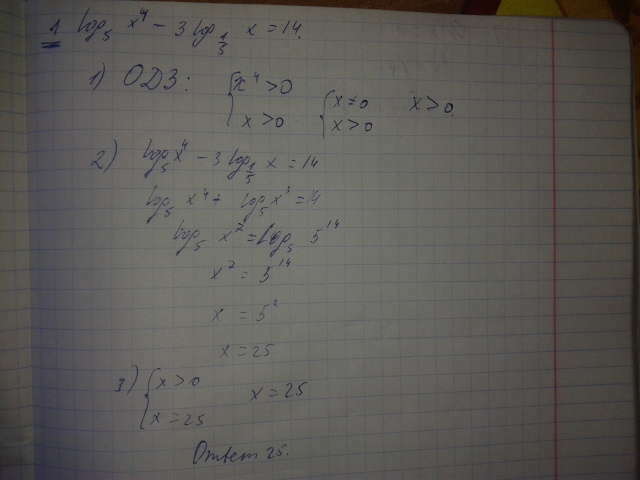 1 log₅ x⁴ − 3 log_{1/5} x = 14.
1) ОДЗ: { x⁴ > 0 { x ≠ 0 x > 0
x > 0 x > 0
2) log₅ x⁴ − 3 log_{1/5} x = 14
log₅ x⁴ + log₅ x³ = 14
log₅ x⁷ = log₅ 5¹⁴
x⁷ = 5¹⁴
x = 5²
x = 25
3) { x > 0 x = 25
x = 25
Ответ 25.